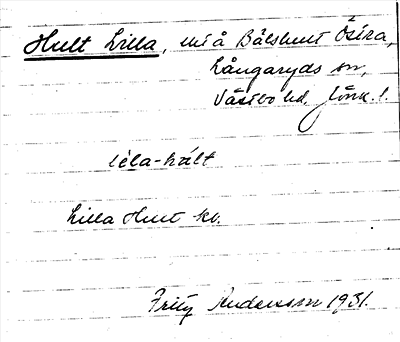 Hult Lilla, uti å Bälshult Östra,
Långaryds sn,
Västbo hd. Jönk. l.
lila-hălt
Lilla Hult kv.
Fritz Andersson 1931.